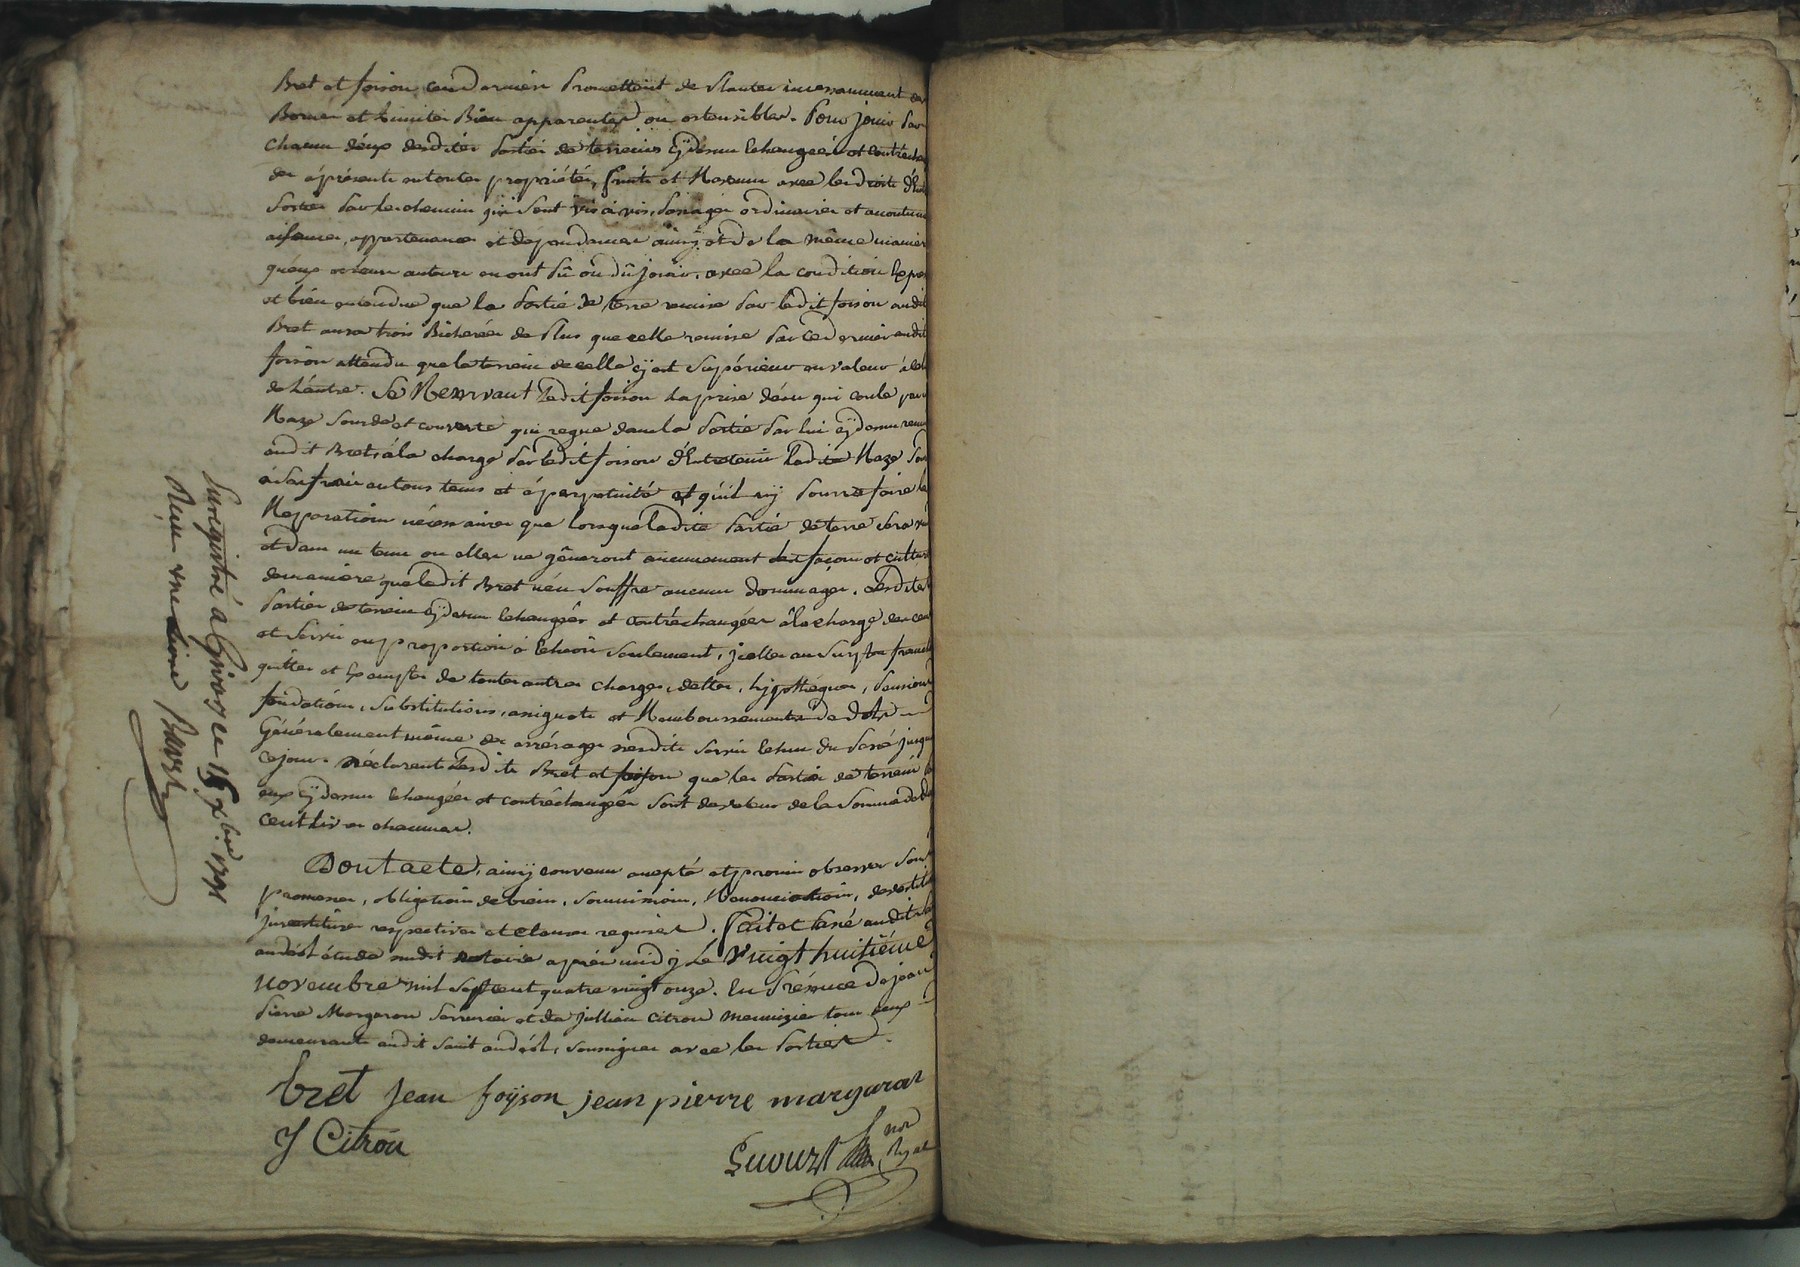 Bret et foison ces derniers Promettent de Planter incessamment des
Bornes et Limites Bien apparentes ou ostensibles. Pour jouir Par
chacun d'eux desdites Parties de terreins cÿdessus Echangées et contréchan
des àprésent en toutes propriétés, fruits et Revenus avec les droits d'En
Sortie Par les chemins qui sont vis à vis, Passages ordinaires et accoutum
aisances, appartenances et dépendances ainsy et de la même manier
qu'eux et leurs auteurs en ont Pû ou dû jouir, avec la condition Expre
et bien entendue que la Partie de terre remise Par ledit foison audit
Bret aura trois Bicherées de Plus que celle remise Par ce dernier audit
foison attendu que le terrein de cella cÿ est Supérieur en valeur à cel
de L'autre. Se Réservant Ledit foison La prise d'eau qui coule par
Raze Sourde et couverte qui regne dans la Partie Par lui cÿdessus remi
audit Bret, à la charge Par ledit foison d'Entretenir Ladite Raze
à Ses frais en tous tems et à perpetuité et qu'il n'ÿ Pourra faire les
Reparations nécessaires que Lorsque Ladite Partie de terre Sera
et dans un tems ou elles ne gêneront aucunement les façons et cultur
de manière que Ledit Bret n'en Souffre aucuns dommages. Lesdites
Parties de terrein cÿdessus Echangées et Contréchangées à la charge des cens
et Servis en proportion à Echeoir Seulement, jcelles au Surplus franch
quittes et Exemptes de toutes autres charges, dettes, hÿpothéques, Pensions
fondations, Substitutions, assignats et Remboursements de dots
Généralement même des arrérages desdits Servis Echus du Passé jusqu
ce jour. Déclarent Lesdits Bret et foison que les Parties de terrein
eux cÿdessus Echangées et contréchangées Sont de valeur de la Somme de
cent Livres chacune.
Dont acte, ainsÿ convenu accepté et promis observer Sous
Promesses, obligations de biens, Soumissions, Renonciations, devestit
jnvestitures respectives et clauses requises. Fait et Passé audit St
andéol étude dudit notaire après midÿ Le Vingt huitiéme
novembre mil Sept cent quatre vingt onze. En Présence de jean
Pierre Margaron Serrurier et de jullien Citron menuizier tous deux
demeurants audit Saint andéol, Soussignés avec les Parties.
bret jean foÿson jean pierre margaron
J Citron
not
Royal
Enregistré a Givors ce 15 Xbre 1791
Reçu une Livre